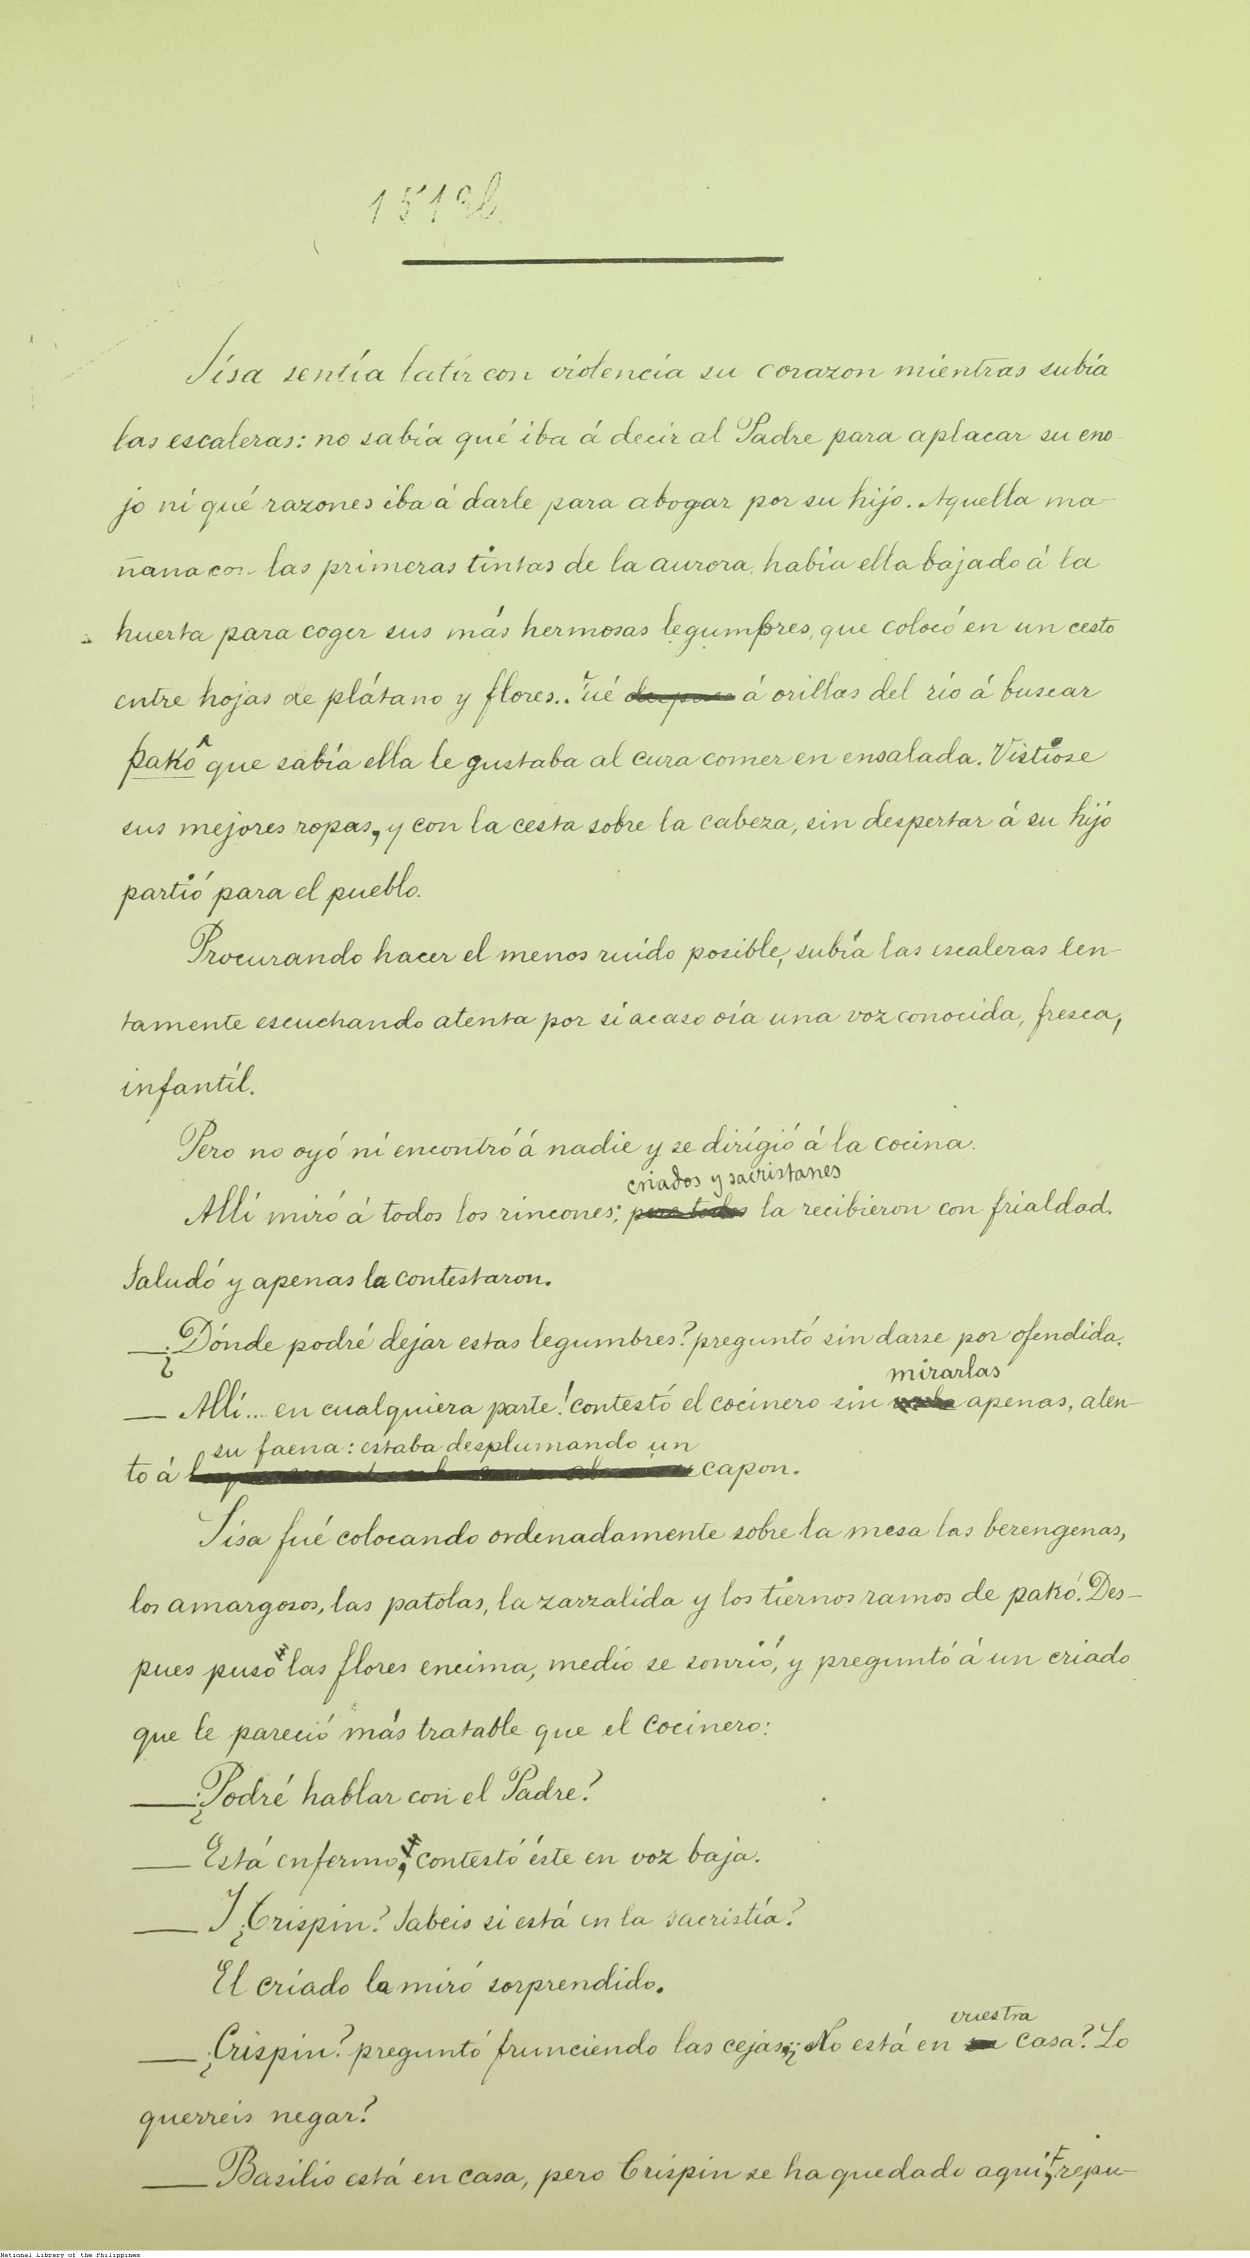 Sisa sentía latir con violencia su corazon mientras subía
las escaleras: no sabía qué iba á decir al Padre para aplacar su eno-
jo ni qué razones iba á darle para abogar por su hijo. Aquella ma-
ñana con las primeras tintas de la aurora, habia ella bajado á la
huerta para coger sus más hermosas legumbres, que colocó en un cesto
entre hojas de plátano y flores. Fué á orillas del río á buscar
pakó que sabía ella le gustaba al cura comer en ensalada. Vistióse
sus mejores ropas, y con la cesta sobre la cabeza, sin despertar á su hijo
partió para el pueblo.
Procurando hacer el menos ruido posible, subía las escaleras len-
tamente escuchando atenta por si acaso oía una voz conocida, fresca,
infantil.
Pero no oyó ni encontró á nadie y se dirigió á la cocina.
criados y sacristanes
Allí miró á todos los rincones; la recibieron con frialdad.
Saludó y apenas la contestaron.
—¿Dónde podré dejar estas legumbres? preguntó sin darse por ofendida.
mirarlas
— Allí... en cualquiera parte! contestó el cocinero sin apenas, aten-
su faena: estaba desplumando un
to á capon.
Sisa fué colocando ordenadamente sobre la mesa las berengenas,
los amargosos, las patolas, la zarzalida y los tiernos ramos de pakó. Des-
pues puso las flores encima, medio se sonrió, y preguntó á un criado
que le pareció más tratable que el cocinero:
—¿Podré hablar con el Padre?
— Está enfermo, contestó éste en voz baja.
— Y ¿Crispin? Sabeis si está en la sacristía?
El criado la miró sorprendido.
vuestra
—¿Crispin? preguntó frunciendo las cejas; ¿No está en casa? Lo
querreis negar?
— Basilio está en casa, pero Crispin se ha quedado aqui, repu-
National Library of the Philippines